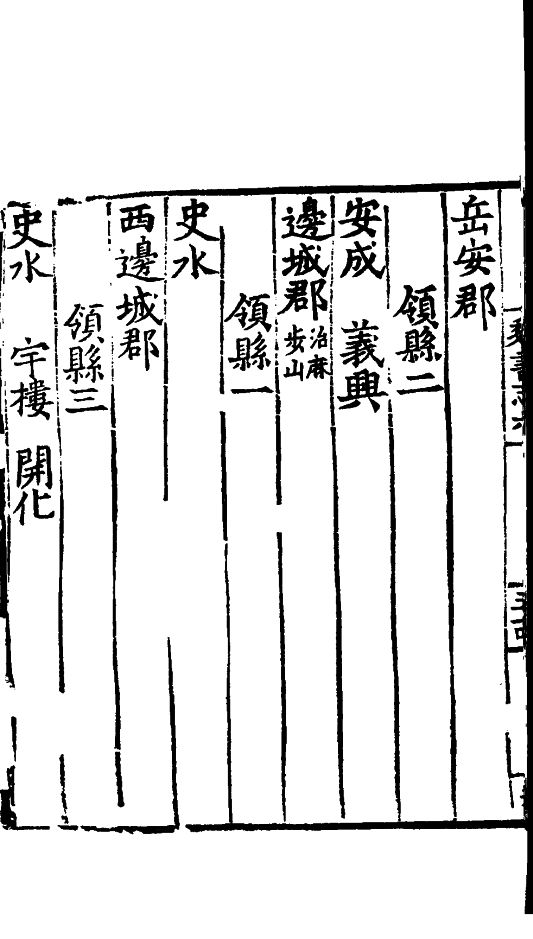 岳安郡
領縣二
安成　義興
邊城郡治麻步山
領縣一
史水
西邊城郡
領縣三
史水　宇樓　開化